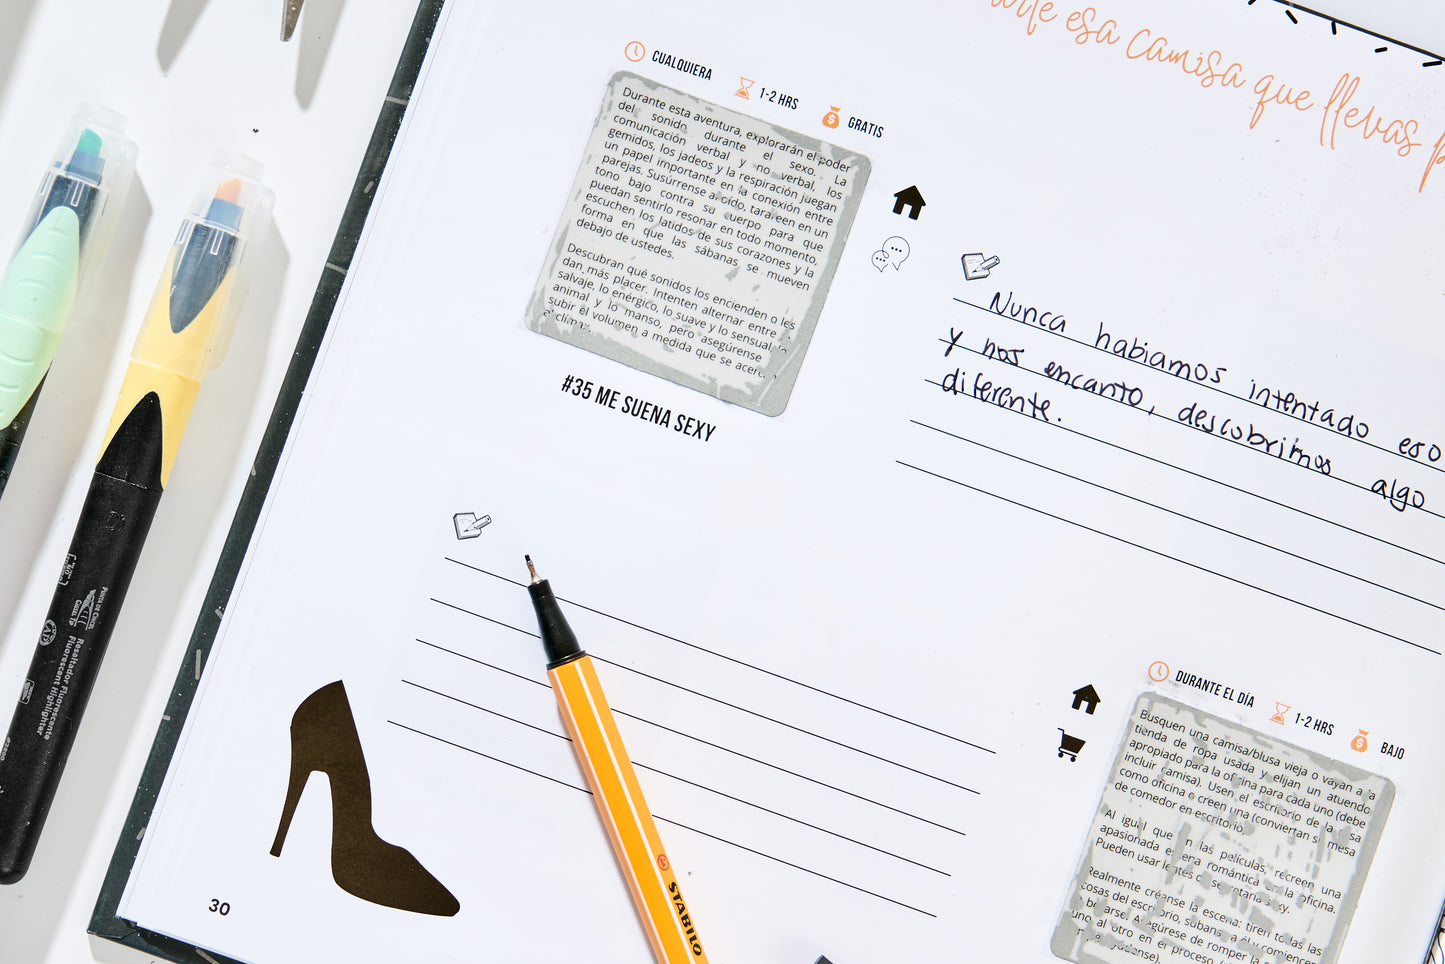 esa camisa que llevas
CUALQUIERA
1-2 HRS
GRATIS
Durante esta aventura, explorarán el poder
del sonido durante el sexo. La
comunicación verbal y no verbal, los
gemidos, los jadeos y la respiración juegan
un papel importante en la conexión entre
parejas. Susúrrense al oído, tarareen en un
tono bajo contra su cuerpo para que
puedan sentirlo resonar en todo momento,
escuchen los latidos de sus corazones y la
forma en que las sábanas se mueven
debajo de ustedes.
Descubran qué sonidos los encienden o les
dan más placer. Intenten alternar entre
salvaje, lo enérgico, lo suave y lo sensual,
animal y lo manso, pero asegúrense
subir el volumen a medida que se acerc
#35 ME SUENA SEXY
Nunca habiamos intentado eso
y nos encanto, descobrimos algo
diferente.
DURANTE EL DÍA
1-2 HRS
BAJO
Busquen una camisa/blusa vieja o vayan a la
tienda de ropa usada y elijan un atuendo
apropiado para la oficina para cada uno (debe
incluir camisa). Usen el escritorio de la
como oficina o creen una (conviertan su mesa
de comedor en escritorio).
Al igual que en las películas, recreen una
apasionada escena romántica en la oficina.
Pueden usar lentes de secretaria sexy.
Realmente créanse la escena: tiren todas las
cosas del escritorio, subans a él y comiencen
a besarse. Asegúrese de romper la
uno al otro en el proceso
30
STABILO
PUNTA DE CINCEL
CHISEL TIP
AP
Resaltador Fluorescente
Fluorescent Highlighter